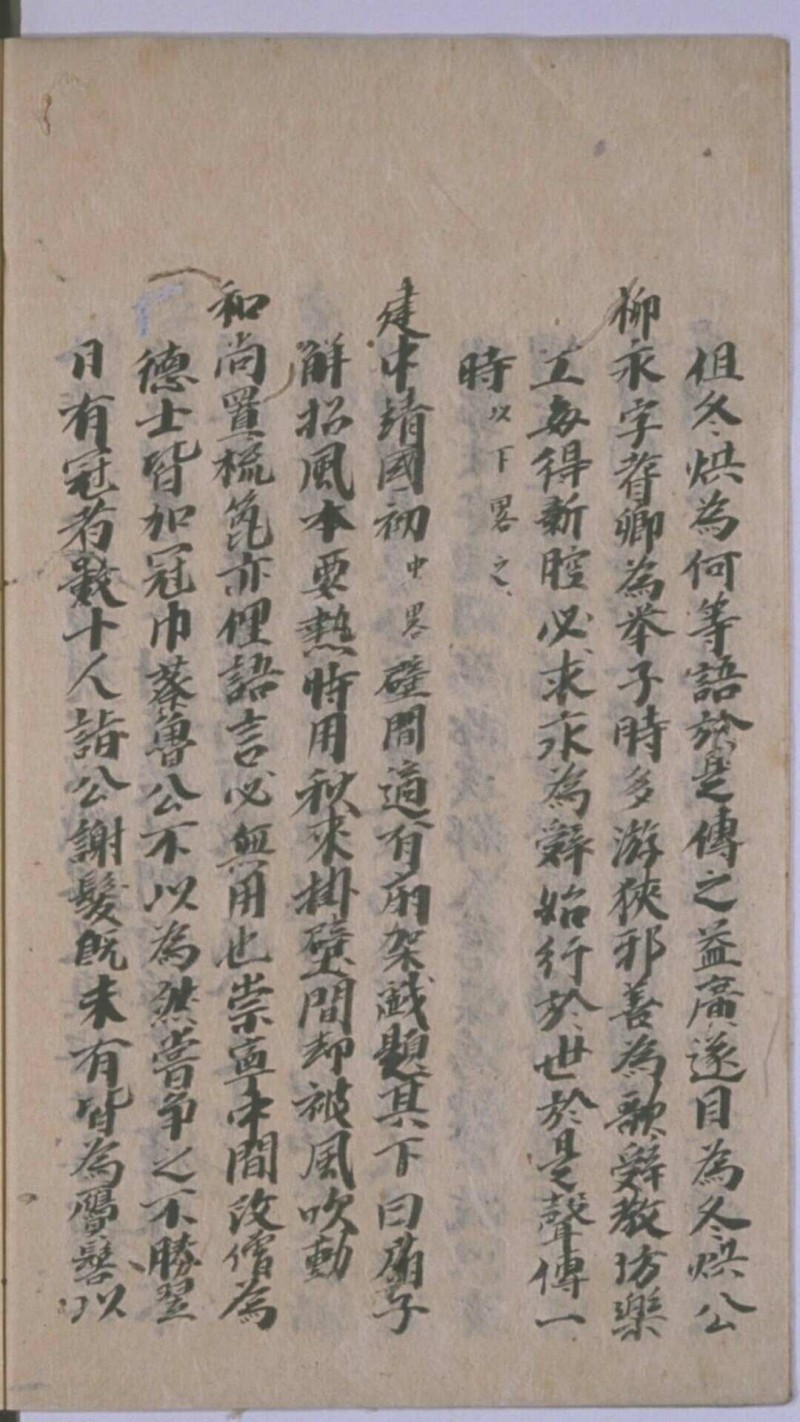 但冬烘為何等語於是傳之益廣遂目為冬烘公
柳永字耆卿為举子時多游狹邪善為歌辞教坊樂
工每得新腔必求永為辞始行於世於是聲傳一
時以下畧之
建中靖國初中畧壁間適有扇架戯題其下曰扇子
解招風本要熱時用秋来掛壁間却被風吹動
和尚置梳篦亦俚語言必無用也崇寧中間改僧為
德士皆加冠巾蔡魯公不以為然嘗争之不勝翌
日有冠者數十人詣公謝髪既未有皆為贋髻以